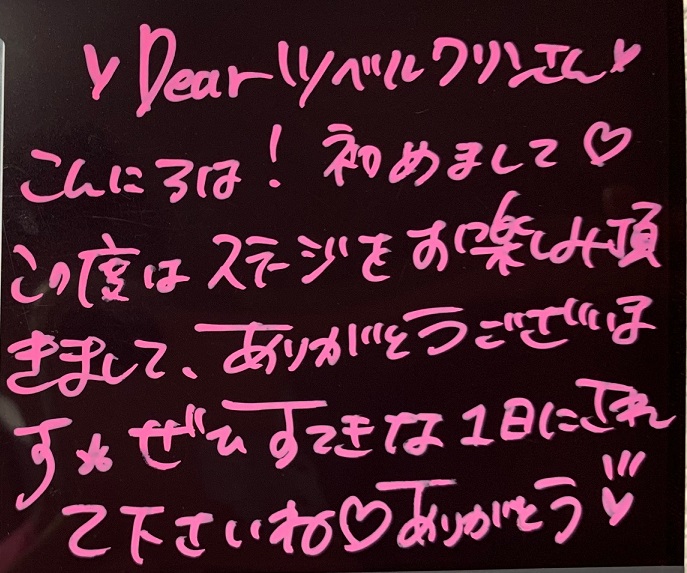 ♥Dearツベルクリンさん♥
こんにちは! 初めまして♡
この度はステージをお楽しみ頂
きまして、ありがとうございま
す ぜひすてきな1日にされ
て下さいね♡ありがとう♥